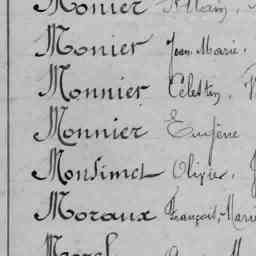 Monier Allain,
Monier Jean Marie.
Monnier Célestin,
Monnier Eugène
Monsimet Olivier,
Moraux François, Marie
Morel